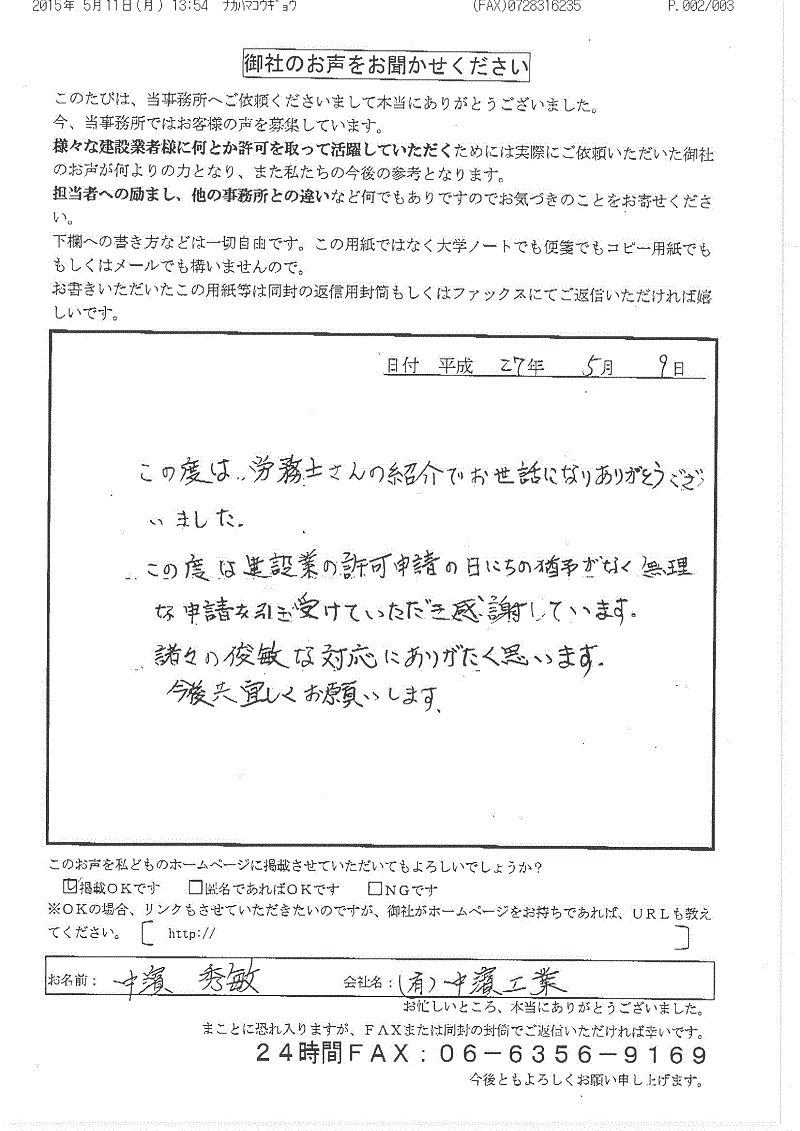 2015年 5月11日(月) 13:54 ナカハマコウギョウ (FAX)0728316235 P.002/003
御社のお声をお聞かせください
このたびは、当事務所へご依頼くださいまして本当にありがとうございました。
今、当事務所ではお客様の声を募集しています。
様々な建設業者様に何とか許可を取って活躍していただくためには実際にご依頼いただいた御社
のお声が何よりの力となり、また私たちの今後の参考となります。
担当者への励まし、他の事務所との違いなど何でもありですのでお気づきのことをお寄せくださ
い。
下欄への書き方などは一切自由です。この用紙ではなく大学ノートでも便箋でもコピー用紙でも
もしくはメールでも構いませんので。
お書きいただいたこの用紙等は同封の返信用封筒もしくはファックスにてご返信いただければ嬉
しいです。
日付 平成 27年 5月 9日
この度は、労務士さんの紹介でお世話になりありがとうござ
いました。
この度は建設業の許可申請の日にちの猶予がなく無理
な申請を引き受けていただき感謝しています。
諸々の俊敏な対応にありがたく思います。
今後共宜しくお願いします。
このお声を私どものホームページに掲載させていただいてもよろしいでしょうか?
☑掲載OKです □匿名であればOKです □NGです
※OKの場合、リンクもさせていただきたいのですが、御社がホームページをお持ちであれば、URLも教え
てください。 [ http:// ]
お名前: 中濱 秀敏 会社名: (有)中濱工業
お忙しいところ、本当にありがとうございました。
まことに恐れ入りますが、FAXまたは同封の封筒でご返信いただければ幸いです。
24時間FAX:06-6356-9169
今後ともよろしくお願い申し上げます。